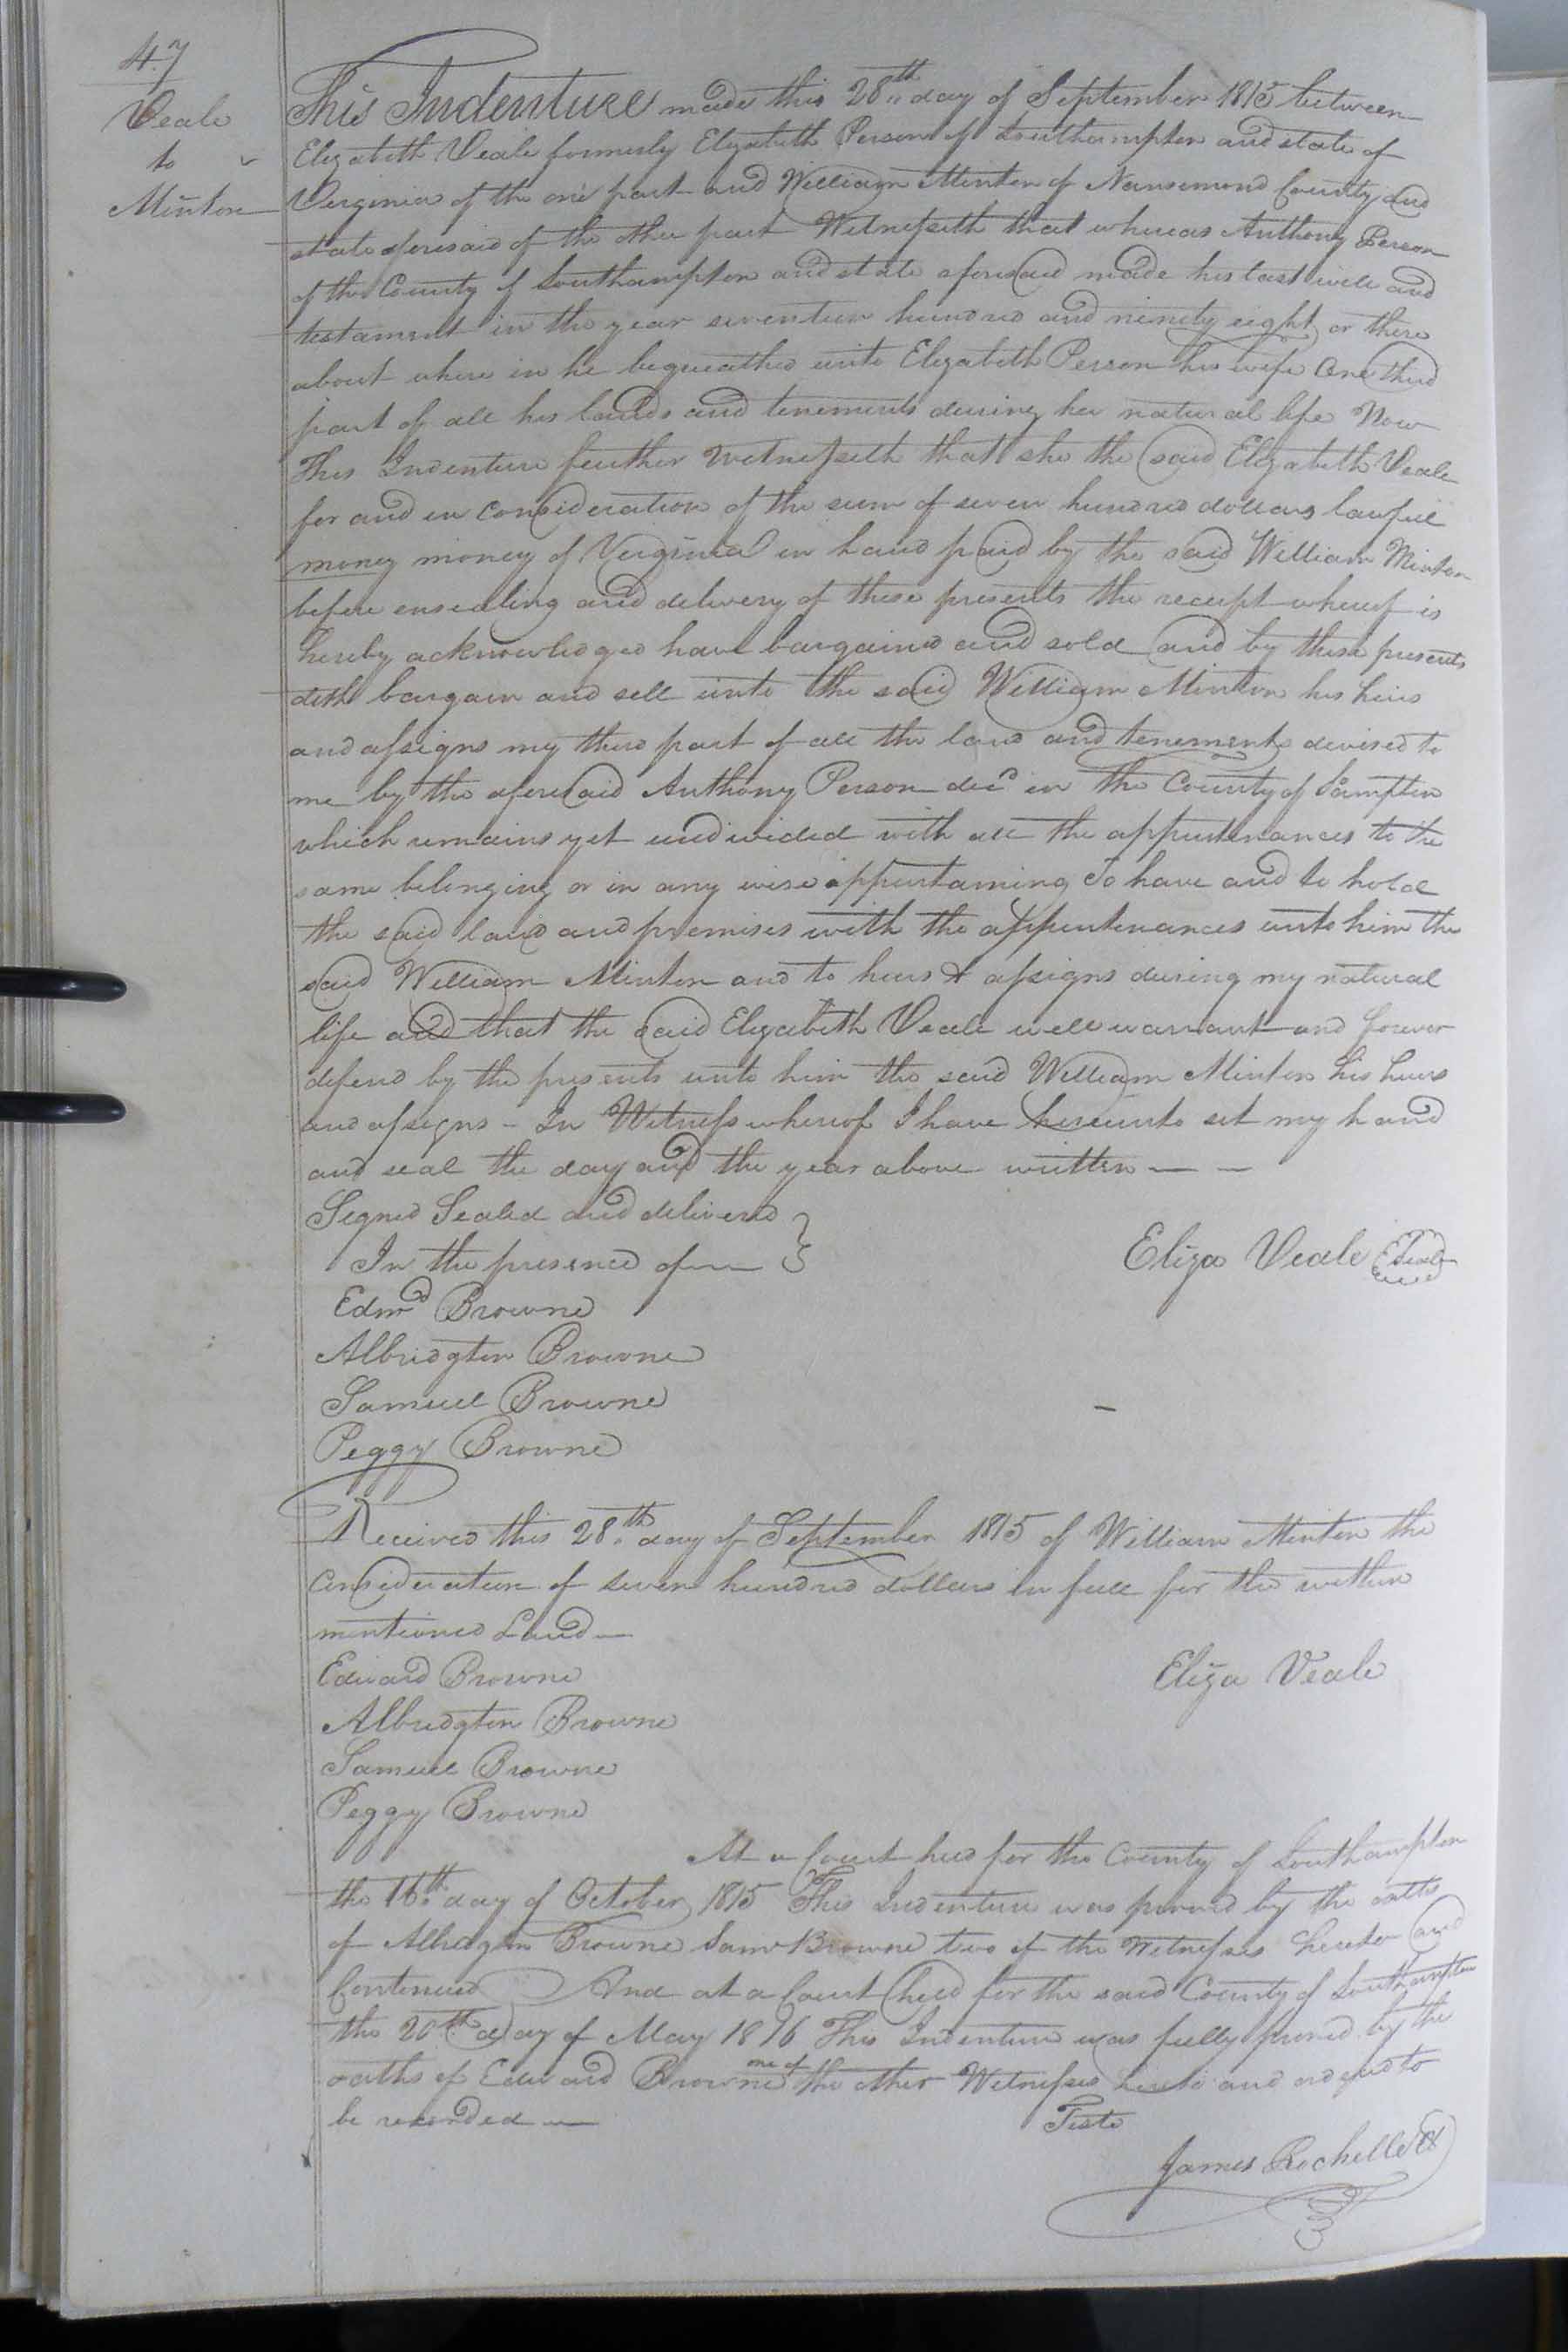 47
Veale
to
Minton
This Indenture made this 28th day of September 1815 between
Elizabeth Veale formerly Elizabeth Person of Southampton and state of
Virginia of the one part and William Minton of Nansemond County and
state aforesaid of the other part Witnesseth that whereas Anthony Person
of the County of Southampton and state aforesaid made his last will and
testament in the year seventeen hundred and ninety eight or there
about where in he bequeathed unto Elizabeth Person his wife One third
part of all his lands and tenements during her natural life Now
This Indenture further witnesseth that she the said Elizabeth Veale
for and in consideration of the sum of seven hundred dollars lawful
money money of Virginia in hand paid by the said William Minton
before ensealing and delivery of these presents the receipt whereof is
hereby acknowledged have bargained and sold and by these presents
doth bargain and sell unto the said William Minton his heirs
and assigns my third part of all the land and tenements devised to
me by the aforesaid Anthony Person decd in the County of Sampton
which remains yet undivided with all the appurtenances to the
same belonging or in any wise appurtaining To have and to hold
the said land and premises with the appurtenances unto him the
said William Minton and to heirs & assigns during my natural
life and that the said Elizabeth Veale will warrant and forever
defend by the presents unto him the said William Minton his heirs
and assigns - In Witness whereof I have hereunto set my hand
and seal the day and the year above written — —
Signed Sealed and delivered
In the presence of — Eliza Veale Seal
Edmd Browne
Albridgton Browne
Samuel Browne
Peggy Browne
Received this 28th day of September 1815 of William Minton the
consideration of seven hundred dollars in full for the within
mentioned Land —
Edward Browne Eliza Veale
Albridgton Browne
Samuel Browne
Peggy Browne
At a Court held for the County of Southampton
the 16th day of October 1815 This Indenture was proved by the oaths
of Albridgton Browne Saml Browne two of the Witnesses hereto and
Continued And at a Court held for the said County of Southampton
the 20th day of May 1816 This Indenture was fully proved by the
oaths of Edward Browne one of the other Witnesses hereto and ordered to
be recorded —
Teste
James Rochelle Cl